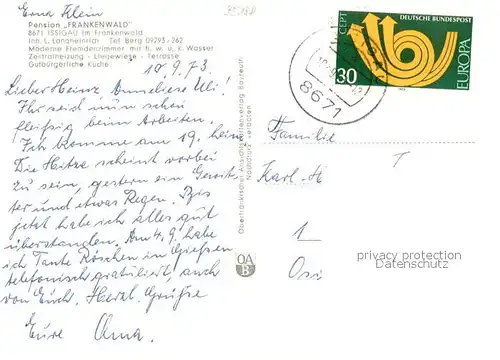 Erna Klein
Pension „FRANKENWALD"
8671 ISSIGAU im Frankenwald
Inh. E. Langheinrich Tel. Berg 09293-262
Moderne Fremdenzimmer mit fl. w. u. k. Wasser
Zentralheizung - Liegewiese - Terrasse
Gutbürgerliche Küche
10.9.73
Lieber Heinz, Anneliese Uli!
Ihr seid nun schon
fleißig beim Arbeiten.
Ich komme am 19. heim
Die Hitze scheint vorbei
zu sein, gestern ein Gewit-
ter und etwas Regen. Bis
jetzt habe ich alles gut
überstanden. Am 4.9. habe
ich Tante Röschen in Gießen
telefonisch gratuliert, auch
von Euch. Herzl. Grüße
Eure Oma.
Oberfränkischer Ansichtskartenverlag Bayreuth
Nachdruck verboten
OA
B
CEPT
DEUTSCHE BUNDESPOST
EUROPA
30
8671
Familie
Karl-H T
1
privacy protection
Datenschutz